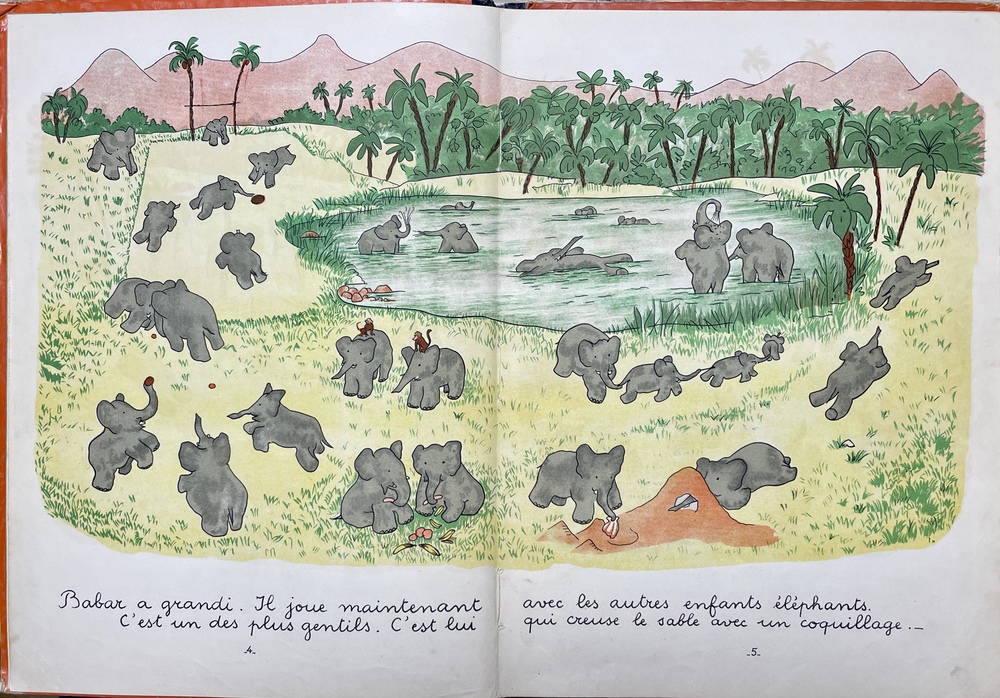 Babar a grandi. Il joue maintenant avec les autres enfants éléphants.
C'est un des plus gentils. C'est lui qui creuse le sable avec un coquillage._
_4_
_5_